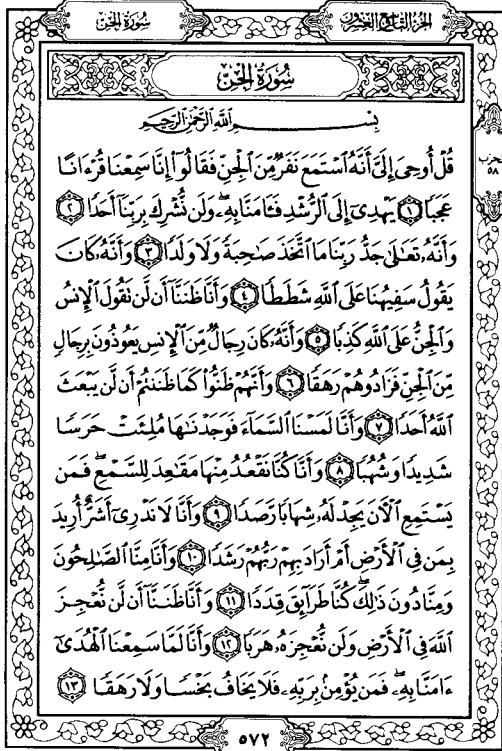 سُورَةُ الجِنِّ
الجُزْءُ التَّاسِعُ وَالعِشْرُونَ
سُورَةُ الجِنِّ
بِسْمِ ٱللَّهِ ٱلرَّحْمَٰنِ ٱلرَّحِيمِ
حزب
٥٨
قُلْ أُوحِىَ إِلَىَّ أَنَّهُ ٱسْتَمَعَ نَفَرٌ مِّنَ ٱلْجِنِّ فَقَالُوٓا۟ إِنَّا سَمِعْنَا قُرْءَانًا
عَجَبًا ١ يَهْدِىٓ إِلَى ٱلرُّشْدِ فَـَٔامَنَّا بِهِۦ وَلَن نُّشْرِكَ بِرَبِّنَآ أَحَدًا ٢
وَأَنَّهُۥ تَعَٰلَىٰ جَدُّ رَبِّنَا مَا ٱتَّخَذَ صَٰحِبَةً وَلَا وَلَدًا ٣ وَأَنَّهُۥ كَانَ
يَقُولُ سَفِيهُنَا عَلَى ٱللَّهِ شَطَطًا ٤ وَأَنَّا ظَنَنَّآ أَن لَّن تَقُولَ ٱلْإِنسُ
وَٱلْجِنُّ عَلَى ٱللَّهِ كَذِبًا ٥ وَأَنَّهُۥ كَانَ رِجَالٌ مِّنَ ٱلْإِنسِ يَعُوذُونَ بِرِجَالٍ
مِّنَ ٱلْجِنِّ فَزَادُوهُمْ رَهَقًا ٦ وَأَنَّهُمْ ظَنُّوا۟ كَمَا ظَنَنتُمْ أَن لَّن يَبْعَثَ
ٱللَّهُ أَحَدًا ٧ وَأَنَّا لَمَسْنَا ٱلسَّمَآءَ فَوَجَدْنَٰهَا مُلِئَتْ حَرَسًا
شَدِيدًا وَشُهُبًا ٨ وَأَنَّا كُنَّا نَقْعُدُ مِنْهَا مَقَٰعِدَ لِلسَّمْعِ فَمَن
يَسْتَمِعِ ٱلْـَٔانَ يَجِدْ لَهُۥ شِهَابًا رَّصَدًا ٩ وَأَنَّا لَا نَدْرِىٓ أَشَرٌّ أُرِيدَ
بِمَن فِى ٱلْأَرْضِ أَمْ أَرَادَ بِهِمْ رَبُّهُمْ رَشَدًا ١٠ وَأَنَّا مِنَّا ٱلصَّٰلِحُونَ
وَمِنَّا دُونَ ذَٰلِكَ كُنَّا طَرَآئِقَ قِدَدًا ١١ وَأَنَّا ظَنَنَّآ أَن لَّن نُّعْجِزَ
ٱللَّهَ فِى ٱلْأَرْضِ وَلَن نُّعْجِزَهُۥ هَرَبًا ١٢ وَأَنَّا لَمَّا سَمِعْنَا ٱلْهُدَىٰٓ
ءَامَنَّا بِهِۦ فَمَن يُؤْمِنۢ بِرَبِّهِۦ فَلَا يَخَافُ بَخْسًا وَلَا رَهَقًا ١٣
٥٧٢